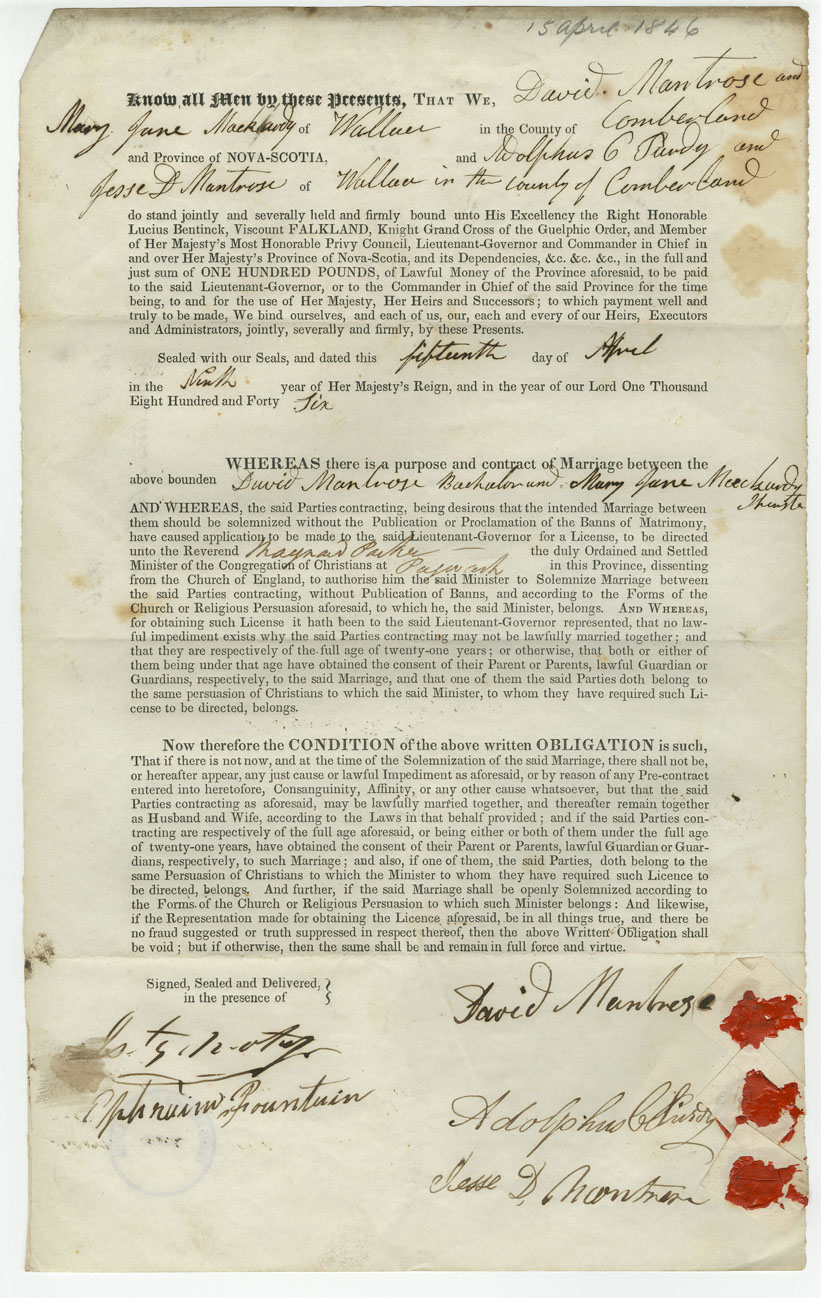 15 April 1846
Know all Men by these Presents, THAT WE, David Mantrose and
Mary Jane of Wallace in the County of Comberland
and Province of NOVA-SCOTIA, and Adolphus C Purdy and
Jesse D Mantrose of Wallace in the county of Comberland
do stand jointly and severally held and firmly bound unto His Excellency the Right Honorable
Lucius Bentinck, Viscount FALKLAND, Knight Grand Cross of the Guelphic Order, and Member
of Her Majesty's Most Honorable Privy Council, Lieutenant-Governor and Commander in Chief in
and over Her Majesty's Province of Nova-Scotia, and its Dependencies, &c. &c. &c., in the full and
just sum of ONE HUNDRED POUNDS, of Lawful Money of the Province aforesaid, to be paid
to the said Lieutenant-Governor, or to the Commander in Chief of the said Province for the time
being, to and for the use of Her Majesty, Her Heirs and Successors; to which payment well and
truly to be made, We bind ourselves, and each of us, our, each and every of our Heirs, Executors
and Administrators, jointly, severally and firmly, by these Presents.
Sealed with our Seals, and dated this fifteenth day of April
in the Ninth year of Her Majesty's Reign, and in the year of our Lord One Thousand
Eight Hundred and Forty Six
WHEREAS there is a purpose and contract of Marriage between the
above bounden David Mantrose Bachelor and Mary Jane
AND WHEREAS, the said Parties contracting, being desirous that the intended Marriage between
them should be solemnized without the Publication or Proclamation of the Banns of Matrimony,
have caused application to be made to the said Lieutenant-Governor for a License, to be directed
unto the Reverend Maynard Parker — the duly Ordained and Settled
Minister of the Congregation of Christians at Pugwash in this Province, dissenting
from the Church of England, to authorise him the said Minister to Solemnize Marriage between
the said Parties contracting, without Publication of Banns, and according to the Forms of the
Church or Religious Persuasion aforesaid, to which he, the said Minister, belongs. AND WHEREAS,
for obtaining such License it hath been to the said Lieutenant-Governor represented, that no law-
ful impediment exists why the said Parties contracting may not be lawfully married together; and
that they are respectively of the full age of twenty-one years; or otherwise, that both or either of
them being under that age have obtained the consent of their Parent or Parents, lawful Guardian or
Guardians, respectively, to the said Marriage, and that one of them the said Parties doth belong to
the same persuasion of Christians to which the said Minister, to whom they have required such Li-
cense to be directed, belongs.
Now therefore the CONDITION of the above written OBLIGATION is such,
That if there is not now, and at the time of the Solemnization of the said Marriage, there shall not be,
or hereafter appear, any just cause or lawful Impediment as aforesaid, or by reason of any Pre-contract
entered into heretofore, Consanguinity, Affinity, or any other cause whatsoever, but that the said
Parties contracting as aforesaid, may be lawfully married together, and thereafter remain together
as Husband and Wife, according to the Laws in that behalf provided; and if the said Parties con-
tracting are respectively of the full age aforesaid, or being either or both of them under the full age
of twenty-one years, have obtained the consent of their Parent or Parents, lawful Guardian or Guar-
dians, respectively, to such Marriage; and also, if one of them, the said Parties, doth belong to the
same Persuasion of Christians to which the Minister to whom they have required such Licence to
be directed, belongs. And further, if the said Marriage shall be openly Solemnized according to
the Forms of the Church or Religious Persuasion to which such Minister belongs: And likewise,
if the Representation made for obtaining the Licence aforesaid, be in all things true, and there be
no fraud suggested or truth suppressed in respect thereof, then the above Written Obligation shall
be void; but if otherwise, then the same shall be and remain in full force and virtue.
Signed, Sealed and Delivered,
in the presence of
David Mantrose
Ephraim Fountain
Adolphus C Purdy
Jesse D. Mantrose